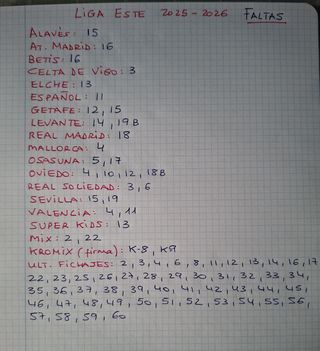 LIGA ESTE 2025-2026 FALTAS
ALAVÉS: 15
AT. MADRID: 16
BETIS: 16
CELTA DE VIGO: 3
ELCHE: 13
ESPAÑOL: 11
GETAFE: 12, 15
LEVANTE: 14, 19B
REAL MADRID: 18
MALLORCA: 4
OSASUNA: 5, 17
OVIEDO: 4, 10, 12, 18B
REAL SOCIEDAD: 3, 6
SEVILLA: 15, 19
VALENCIA: 4, 11
SUPER KIDS: 13
MIX: 2, 22
KROMIX (firma): K-8, K9
ULT. FICHAJES: 2, 3, 4, 6, 8, 11, 12, 13, 14, 16, 17
22, 23, 25, 26, 27, 28, 29, 30, 31, 32, 33, 34,
35, 36, 37, 38, 39, 40, 41, 42, 43, 44, 45,
46, 47, 48, 49, 50, 51, 52, 53, 54, 55, 56,
57, 58, 59, 60